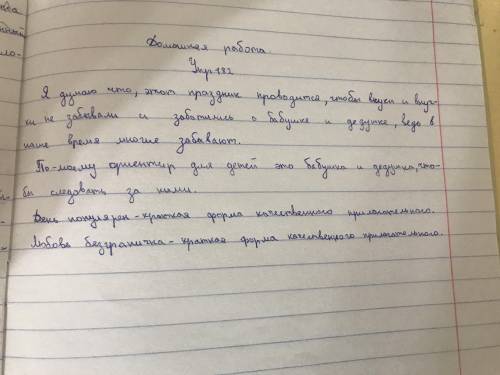 Домашняя работа.
Упр 182
Я думаю что, этот праздник проводится, чтобы внуки и внуч-
ки не забывали и заботились о бабушке и дедушке, ведь в
наше время многие забывают.
По-моему ориентир для детей это бабушка и дедушка, что-
бы следовать за ними.
День популярен - краткая форма качественного прилагательного.
Любовь безгранична - краткая форма качественного прилагательного.